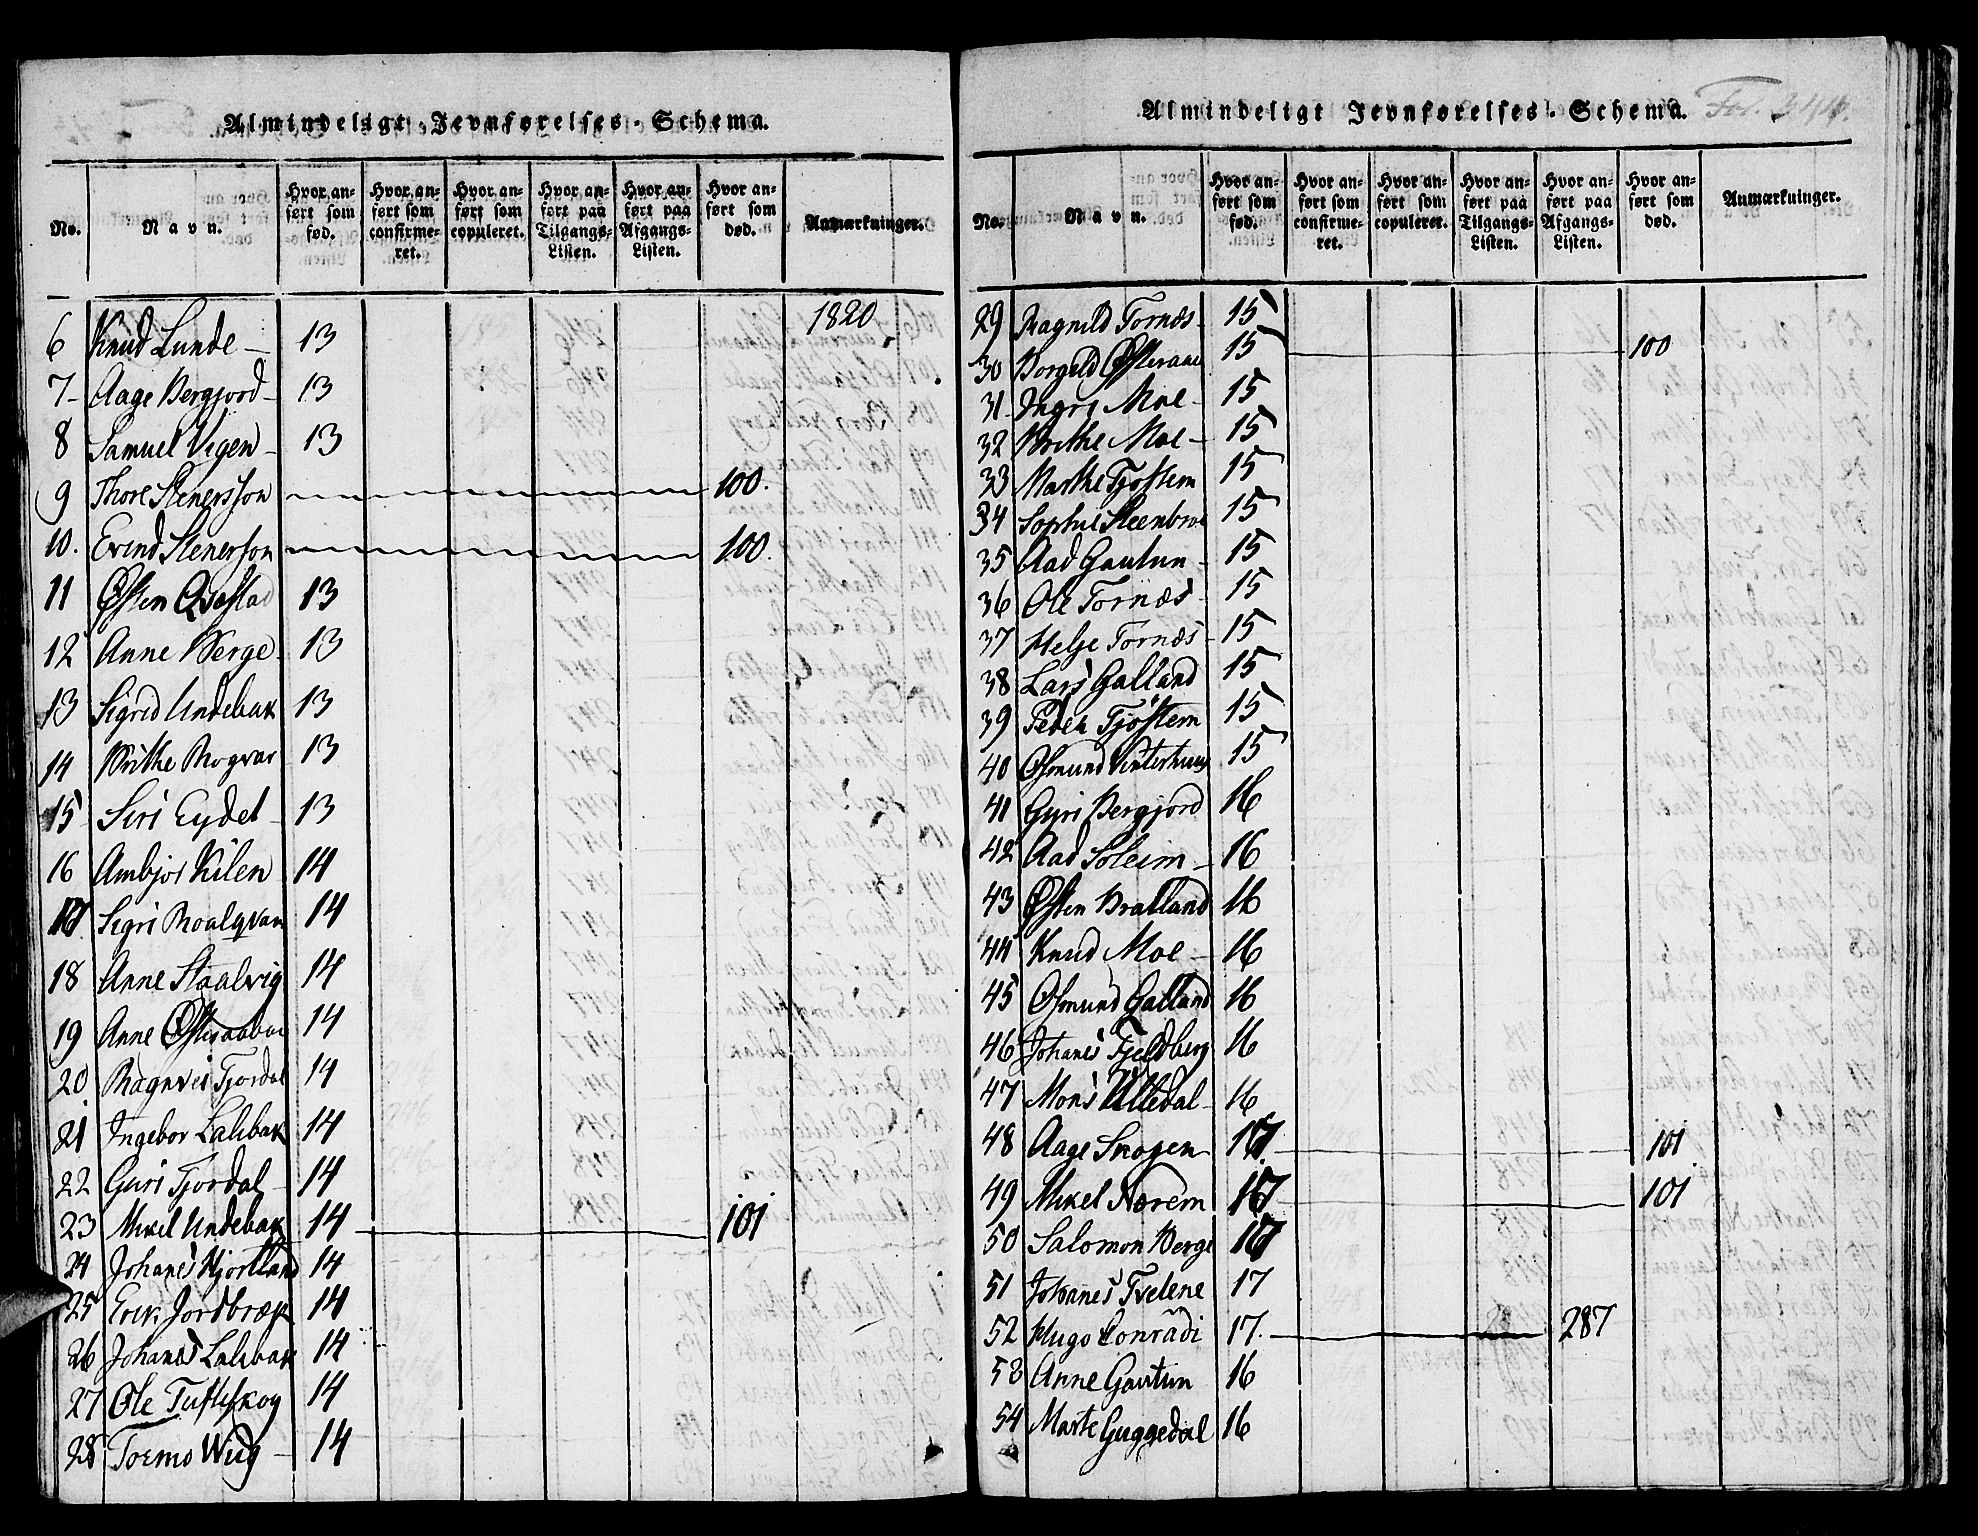 Almindeligt Jevnførelses-Schema.
No.
Navn.
Hvor anført som fød.
Hvor anført som confirmeret.
Hvor anført som copuleret.
Hvor anført paa Tilgangs-Listen.
Hvor anført paa Afgangs-Listen.
Hvor anført som død.
Anmærkninger.
1820
6 Knud Lunde 13
7 Aage Bergjord 13
8 Samuel Vigen 13
9 Thore Stenersson 100.
10. Evind Stenerson 100.
11 Østen Qvastad 13
12 Anne Berge 13
13 Sigrid Undebak 13
14 Brithe Rogvar 13
15 Siri Eydet 13
16 Ambjor Kilen 14
17 Sigri Roalqvam 14
18 Anne Staalvig 14
19 Anne Østeraaboe 14
20. Tjordal 14
21 Ingebor Lalibak 14
22 Guri Tjordal 14
23 Mikel Undebak 14 101
24 Johanes Hjortland 14
25 Erik Jordbræk 14
26 Johanes Lalibak 14
27 Ole Tufteskog 14
28 Tormo Wiig 14
Almindeligt Jevnførelses-Schema.
Fol. 344.
No.
Navn.
Hvor anført som fød.
Hvor anført som confirmeret.
Hvor anført som copuleret.
Hvor anført paa Tilgangs-Listen.
Hvor anført paa Afgangs-Listen.
Hvor anført som død.
Anmærkninger.
29 Ragnild Tornæs 15
30 Borgild Østeraae 15 100
31 Ingri Moe 15
32 Brithe Moe 15
33 Marthe Tjøstem 15
34 Sophie Steenbroe 15
35 Aad Gautun 15
36 Ole Tornæs 15
37 Helje Tornæs 15
38 Lars Galland 15
39 Peder Tjøstem 15
40 Osmund Vinterhuus 15
41 Guri Bergjord 16
42 Aad Soleim 16
43 Østen Bratland 16
44 Knud Moe 16
45 Osmund Galland 16
46 Johanes Fjeldberg 16
47 Mons Ulledal 16
48 Aage Snogen 17. 101
49 Mikel Norem 17 101
50 Salomon Berge 17
51 Johanes Tvelene 17
52 Hugo Conradi 17. 287
53 Anne Gautun 16
54 Marte Guggedal 16